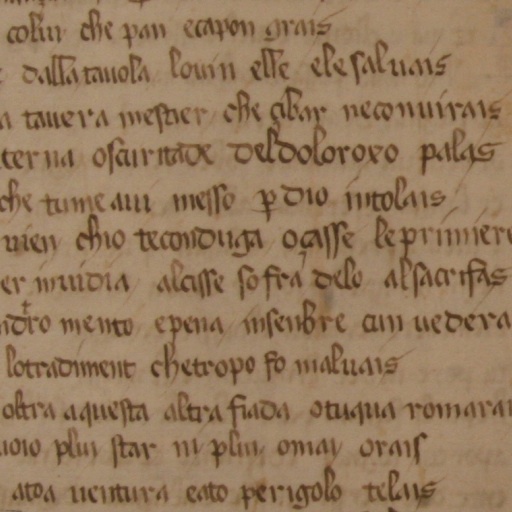 colui che pan e capon grais
dalla tavola lo vin elle e le salvais
a tavera mestier che çibar ne convirais
terna oscuritade del doloroxo palas
che tu me avi messo per dio in tolais
vien ch'io te conduga o çasse le primiere
er invidia alcisse so fra delo al sacrifas
mento e pena insenbre cun vedera
lo tradiment che tropo fo malvais
oltra a questa altra fiada o tu qua romara
voio plui star ni plui omai orais
a toa ventura e a to perigolo te lais